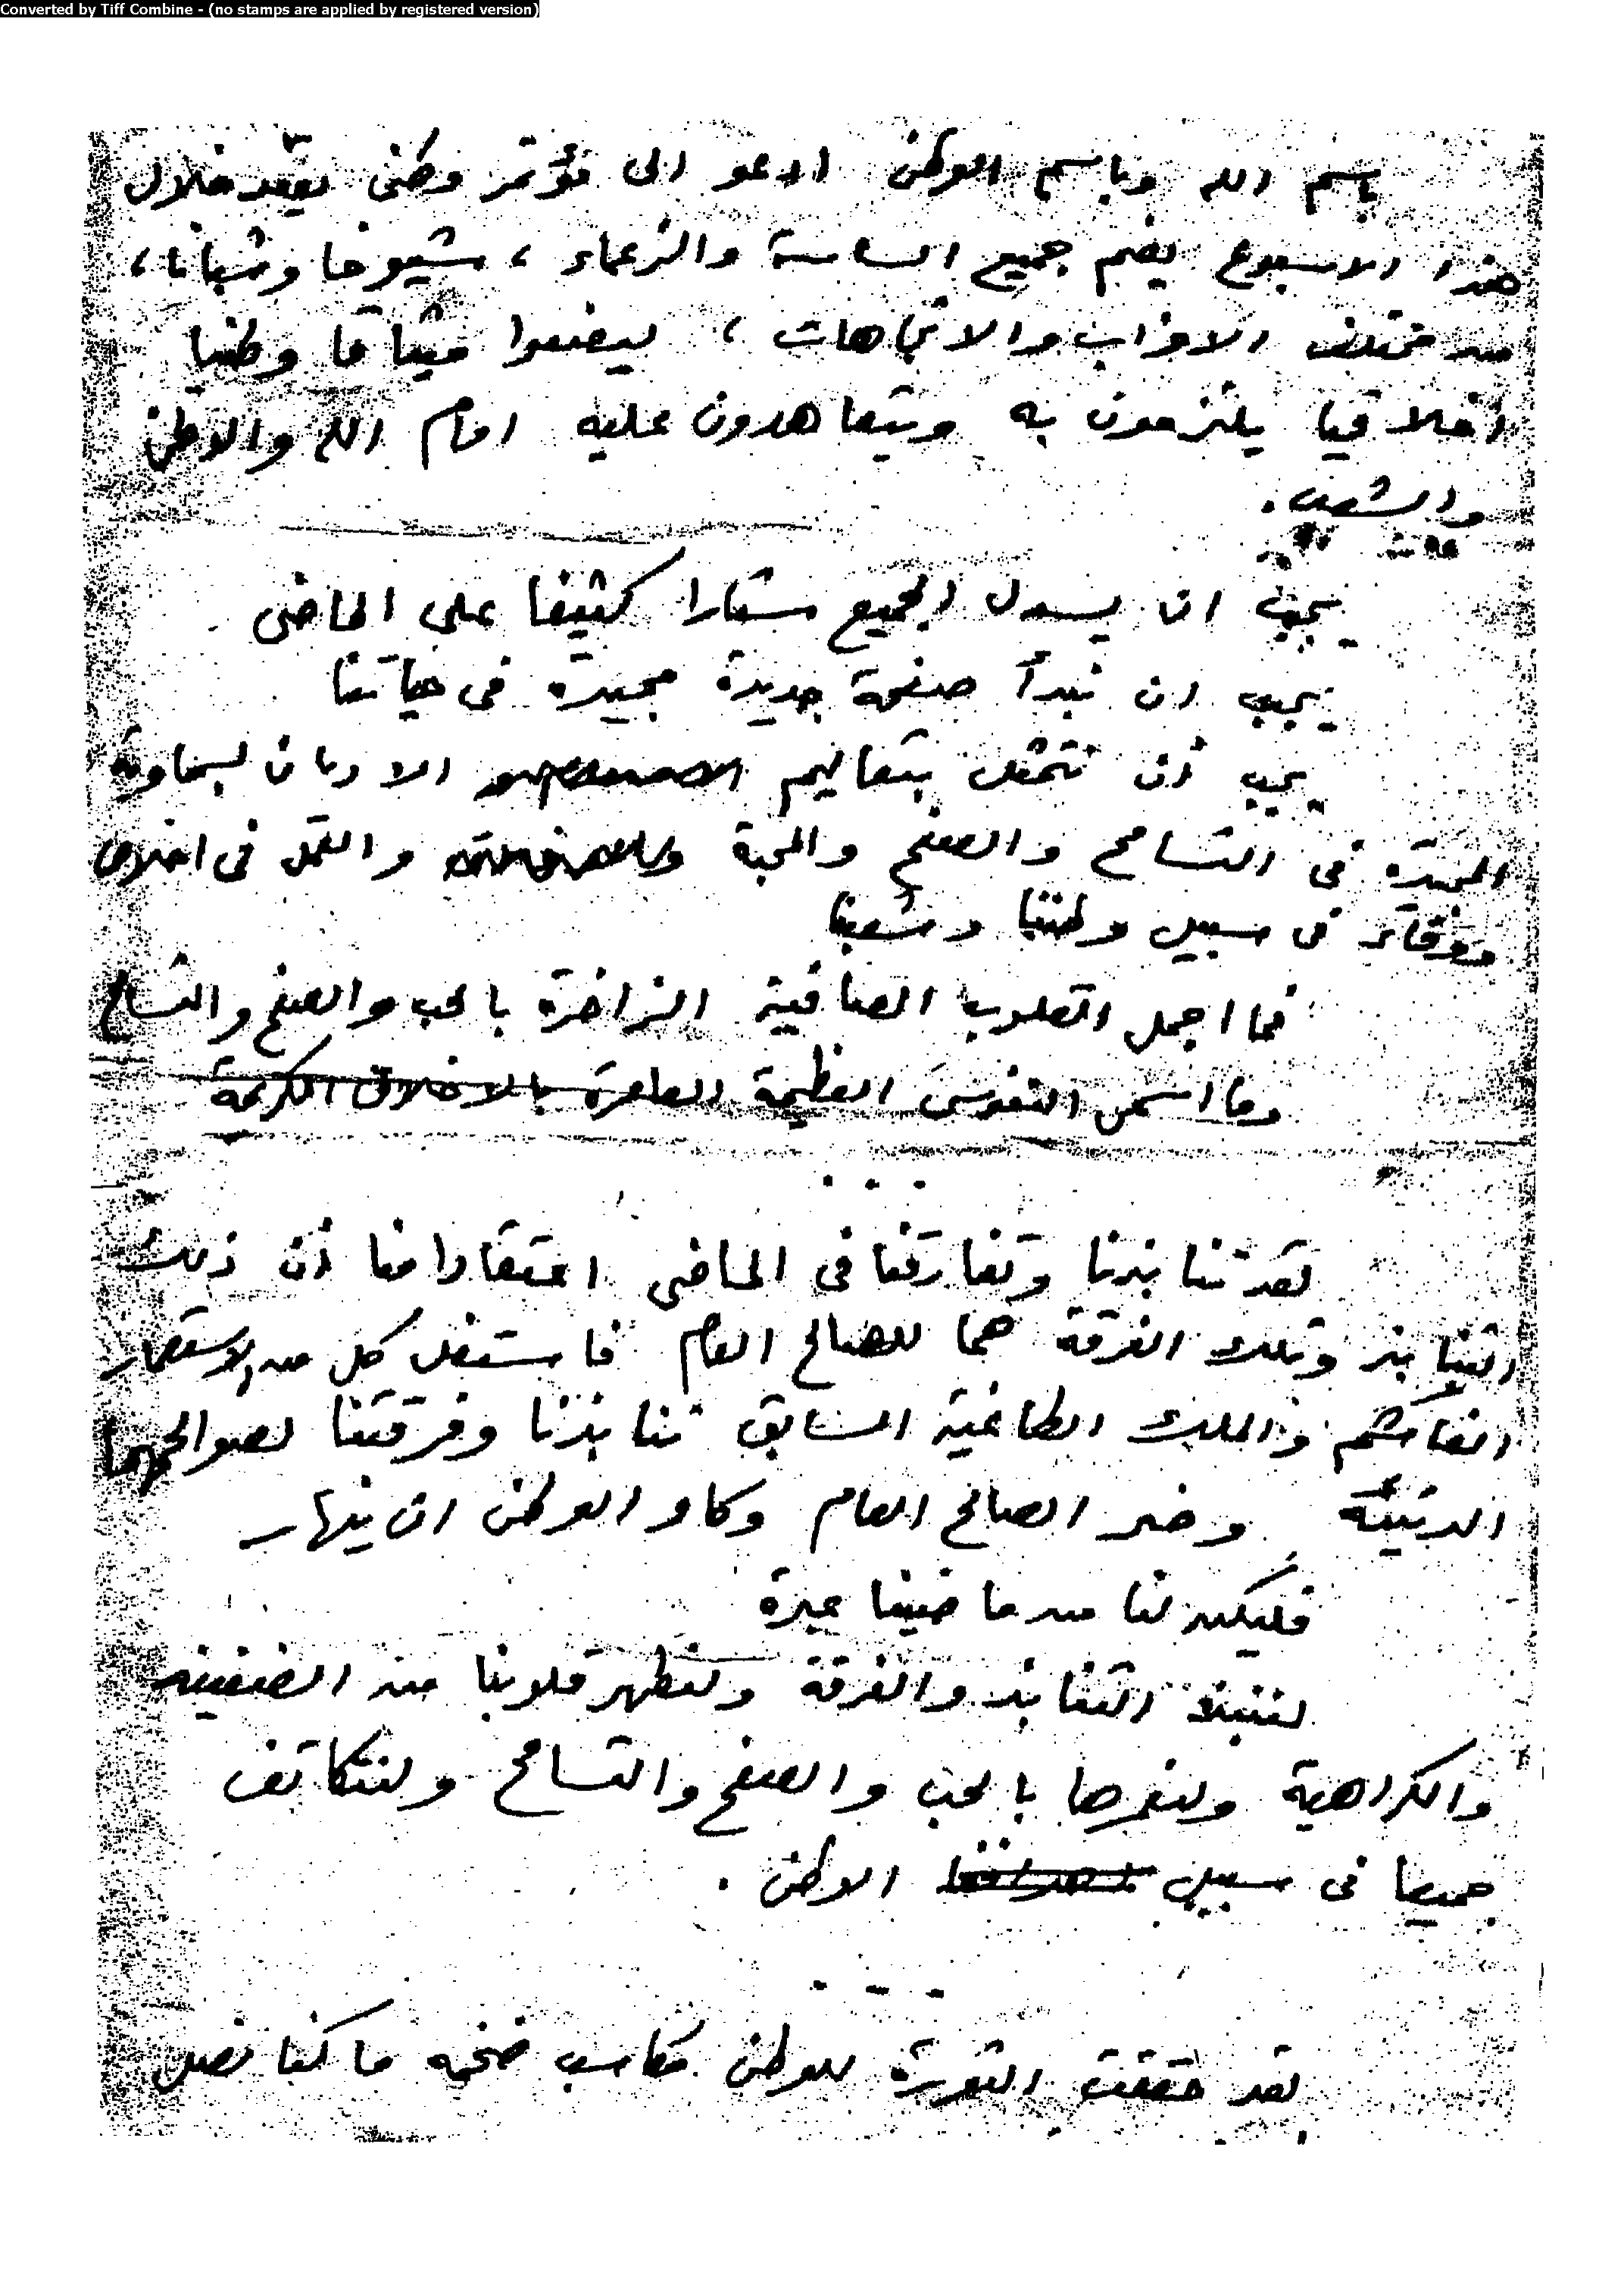 Converted by Tiff Combine - (no stamps are applied by registered version)
باسم الله وباسم الوطن ادعو الى مؤتمر وطنى يعقد خلال
هذا الاسبوع يضم جميع الساسة والزعماء ، شيوخا وشبانا ،
من مختلف الاحزاب والاتجاهات ، ليضعوا ميثاقا وطنيا
أخلاقيا يلتزمون به ويتعاهدون عليه امام الله والوطن
والشعب .
يجب ان يسدل الجميع ستارا كثيفا على الماضى
يجب ان نبدأ صفحة جديدة مجيدة فى حياتنا
يجب أن نتمثل بتعاليم الاديان السماوية
المجيدة فى التسامح والصفح والمحبة والعمل فى اخلاص
ووفاء فى سبيل وطننا وشعبنا
فما اجمل القلوب الصافية الزاخرة بالحب والصفح والتسامح
وما اسمى النفوس العظيمة العامرة بالاخلاق الكريمة
. . .
لقد تنابذنا وتفارقنا فى الماضى اعتقادا منا أن ذلك
التنابذ وتلك الفرقة هما للصالح العام فاستغل كل من الاستعمار
الغاشم والملك الطاغية السابق تنابذنا وفرقتنا لصوالحهما
الدنيئة وخسر الصالح العام وكاد الوطن ان ينهار
فليكن لنا من ماضينا عبرة
لننبذ التنابذ والفرقة ولنطهر قلوبنا من الضغينه
والكراهية ولنغمرها بالحب والصفح والتسامح ولنتكاتف
جميعا فى سبيل الوطن .
. . .
لقد حققت الثورة للوطن مكاسب ضخمه ما كنا نصل